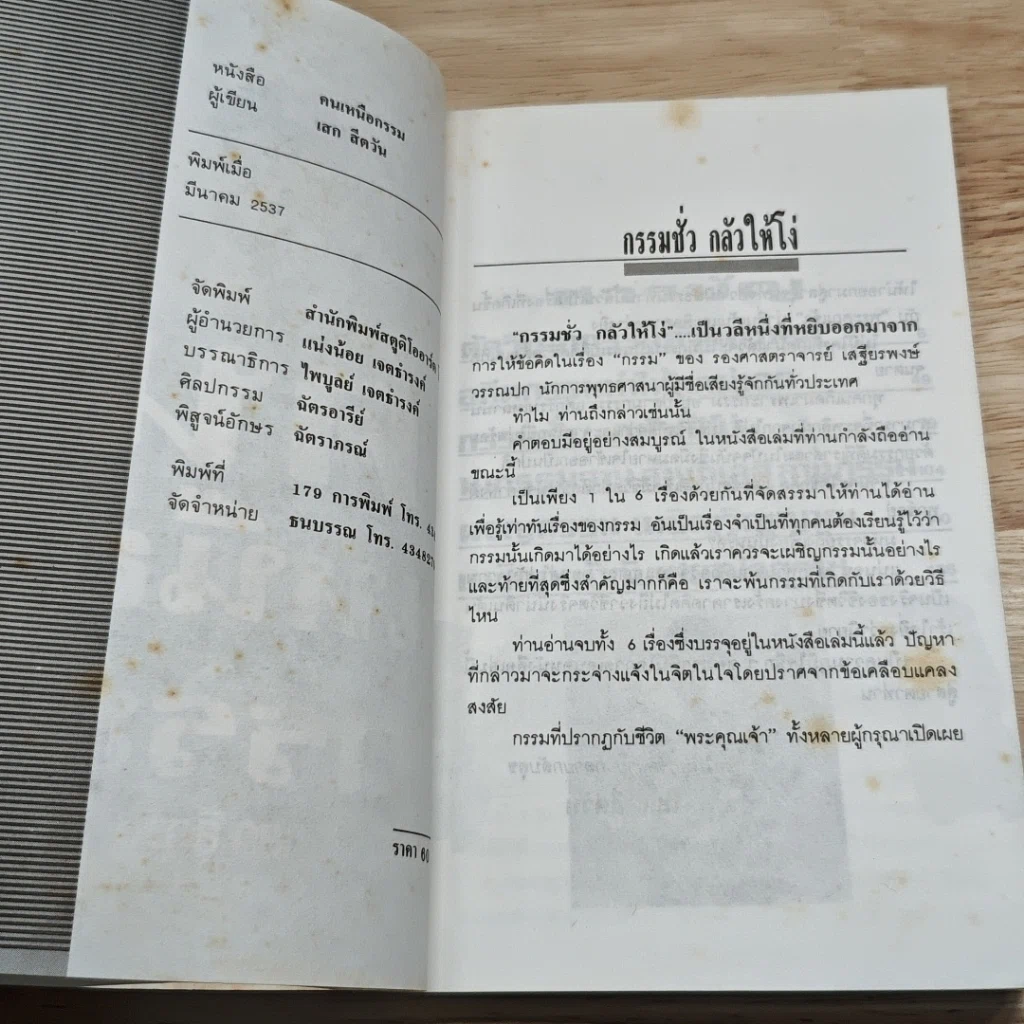 หนังสือ คนเหนือกรรม
ผู้เขียน เสก สีตวัน
พิมพ์เมื่อ
มีนาคม 2537
จัดพิมพ์ สำนักพิมพ์สตูดิโออาร์ต
ผู้อำนวยการ แน่งน้อย เจตธำรงค์
บรรณาธิการ ไพบูลย์ เจตธำรงค์
ศิลปกรรม ฉัตรอารีย์
พิสูจน์อักษร ฉัตราภรณ์
พิมพ์ที่ 179 การพิมพ์ โทร.
จัดจำหน่าย ธนบรรณ โทร.
ราคา 60
กรรมชั่ว กลัวให้โง่
"กรรมชั่ว กลัวให้โง่"....เป็นวลีหนึ่งที่หยิบออกมาจาก
การให้ข้อคิดในเรื่อง "กรรม" ของ รองศาสตราจารย์ เสฐียรพงษ์
วรรณปก นักการพุทธศาสนาผู้มีชื่อเสียงรู้จักกันทั่วประเทศ
ทำไม ท่านถึงกล่าวเช่นนั้น
คำตอบมีอยู่อย่างสมบูรณ์ ในหนังสือเล่มที่ท่านกำลังถืออ่าน
ขณะนี้
เป็นเพียง 1 ใน 6 เรื่องด้วยกันที่จัดสรรมาให้ท่านได้อ่าน
เพื่อรู้เท่าทันเรื่องของกรรม อันเป็นเรื่องจำเป็นที่ทุกคนต้องเรียนรู้ไว้ว่า
กรรมนั้นเกิดมาได้อย่างไร เกิดแล้วเราควรจะเผชิญกรรมนั้นอย่างไร
และท้ายที่สุดซึ่งสำคัญมากก็คือ เราจะพ้นกรรมที่เกิดกับเราด้วยวิธี
ไหน
ท่านอ่านจบทั้ง 6 เรื่องซึ่งบรรจุอยู่ในหนังสือเล่มนี้แล้ว ปัญหา
ที่กล่าวมาจะกระจ่างแจ้งในจิตในใจโดยปราศจากข้อเคลือบแคลง
สงสัย
กรรมที่ปรากฏกับชีวิต "พระคุณเจ้า" ทั้งหลายผู้กรุณาเปิดเผย